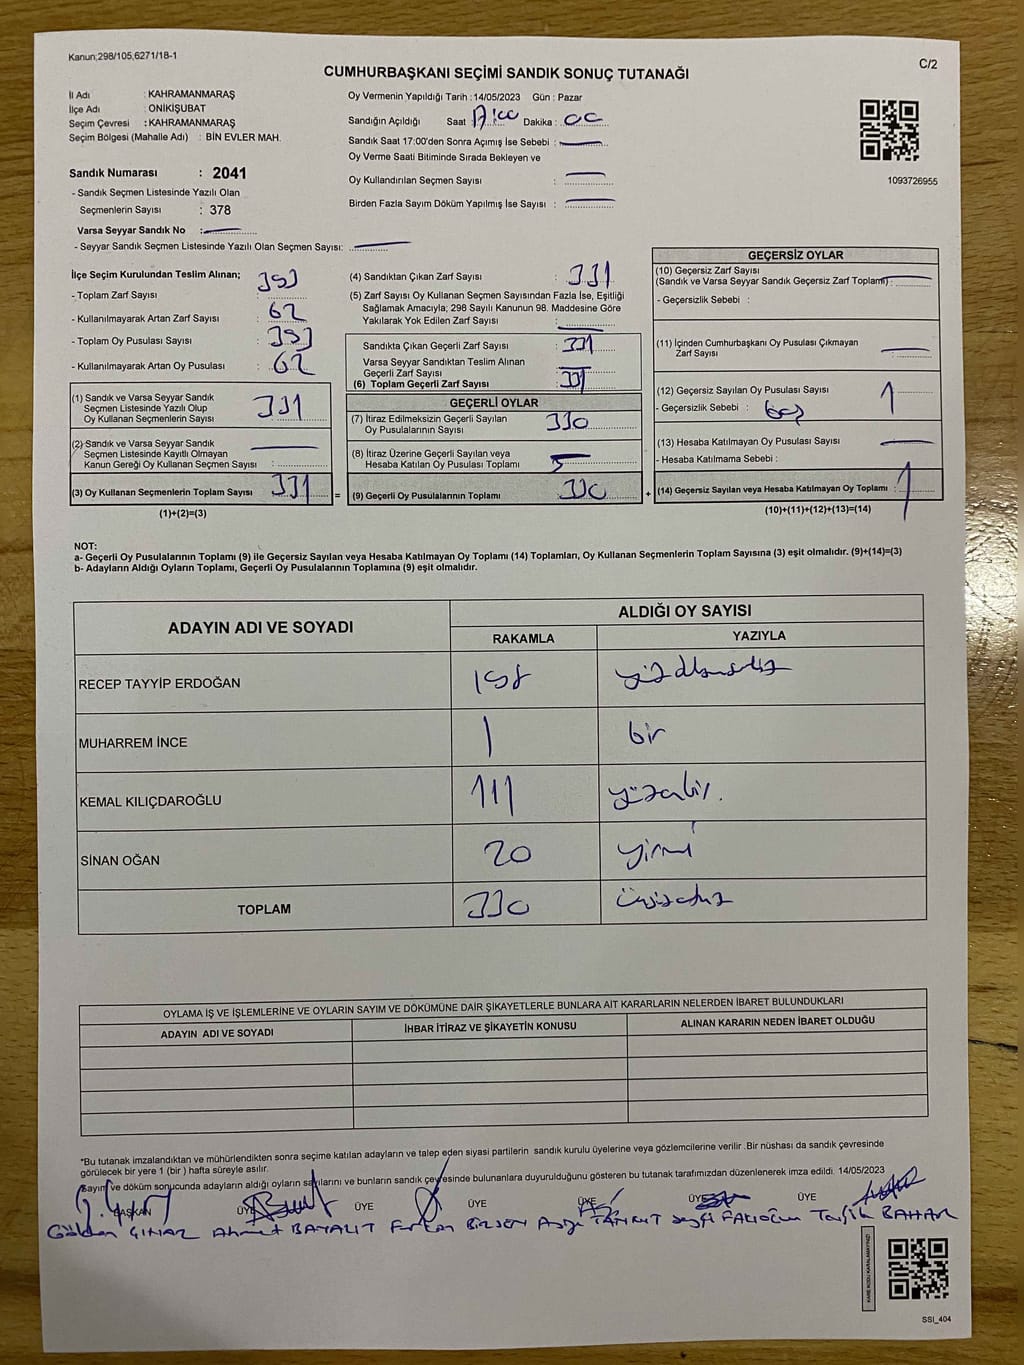 Kanun;298/105,6271/18-1
C/2
CUMHURBAŞKANI SEÇİMİ SANDIK SONUÇ TUTANAĞI
İl Adı : KAHRAMANMARAŞ
İlçe Adı : ONİKİŞUBAT
Seçim Çevresi : KAHRAMANMARAŞ
Seçim Bölgesi (Mahalle Adı) : BİN EVLER MAH.
Oy Vermenin Yapıldığı Tarih : 14/05/2023 Gün : Pazar
Sandığın Açıldığı Saat 17:00 Dakika : 00
Sandık Saat 17:00'den Sonra Açımış İse Sebebi :
Oy Verme Saati Bitiminde Sırada Bekleyen ve
Oy Kullandırılan Seçmen Sayısı :
Birden Fazla Sayım Döküm Yapılmış İse Sayısı :
1093726955
Sandık Numarası : 2041
- Sandık Seçmen Listesinde Yazılı Olan
Seçmenlerin Sayısı : 378
Varsa Seyyar Sandık No :
- Seyyar Sandık Seçmen Listesinde Yazılı Olan Seçmen Sayısı:
İlçe Seçim Kurulundan Teslim Alınan;
- Toplam Zarf Sayısı : 393
- Kullanılmayarak Artan Zarf Sayısı : 62
- Toplam Oy Pusulası Sayısı : 393
- Kullanılmayarak Artan Oy Pusulası : 62
(1) Sandık ve Varsa Seyyar Sandık
Seçmen Listesinde Yazılı Olup
Oy Kullanan Seçmenlerin Sayısı : 331
(2) Sandık ve Varsa Seyyar Sandık
Seçmen Listesinde Kayıtlı Olmayan
Kanun Gereği Oy Kullanan Seçmen Sayısı :
(3) Oy Kullanan Seçmenlerin Toplam Sayısı : 331
(1)+(2)=(3)
(4) Sandıktan Çıkan Zarf Sayısı : 331
(5) Zarf Sayısı Oy Kullanan Seçmen Sayısından Fazla İse, Eşitliği
Sağlamak Amacıyla; 298 Sayılı Kanunun 98. Maddesine Göre
Yakılarak Yok Edilen Zarf Sayısı :
Sandıkta Çıkan Geçerli Zarf Sayısı : 331
Varsa Seyyar Sandıktan Teslim Alınan
Geçerli Zarf Sayısı :
(6) Toplam Geçerli Zarf Sayısı : 331
GEÇERLİ OYLAR
(7) İtiraz Edilmeksizin Geçerli Sayılan
Oy Pusulalarının Sayısı : 330
(8) İtiraz Üzerine Geçerli Sayılan veya
Hesaba Katılan Oy Pusulası Toplamı :
= (9) Geçerli Oy Pusulalarının Toplamı : 330 +
GEÇERSİZ OYLAR
(10) Geçersiz Zarf Sayısı
(Sandık ve Varsa Seyyar Sandık Geçersiz Zarf Toplamı) :
- Geçersizlik Sebebi :
(11) İçinden Cumhurbaşkanı Oy Pusulası Çıkmayan
Zarf Sayısı :
(12) Geçersiz Sayılan Oy Pusulası Sayısı : 1
- Geçersizlik Sebebi : boş
(13) Hesaba Katılmayan Oy Pusulası Sayısı :
- Hesaba Katılmama Sebebi :
(14) Geçersiz Sayılan veya Hesaba Katılmayan Oy Toplamı : 1
(10)+(11)+(12)+(13)=(14)
NOT:
a- Geçerli Oy Pusulalarının Toplamı (9) ile Geçersiz Sayılan veya Hesaba Katılmayan Oy Toplamı (14) Toplamları, Oy Kullanan Seçmenlerin Toplam Sayısına (3) eşit olmalıdır. (9)+(14)=(3)
b- Adayların Aldığı Oyların Toplamı, Geçerli Oy Pusulalarının Toplamına (9) eşit olmalıdır.
ADAYIN ADI VE SOYADI
ALDIĞI OY SAYISI
RAKAMLA YAZIYLA
RECEP TAYYİP ERDOĞAN 198 yüzdoksansekiz
MUHARREM İNCE 1 bir
KEMAL KILIÇDAROĞLU 111 yüzonbir.
SİNAN OĞAN 20 yirmi
TOPLAM 330 üçyüzotuz
OYLAMA İŞ VE İŞLEMLERİNE VE OYLARIN SAYIM VE DÖKÜMÜNE DAİR ŞİKAYETLERLE BUNLARA AİT KARARLARIN NELERDEN İBARET BULUNDUKLARI
ADAYIN ADI VE SOYADI İHBAR İTİRAZ VE ŞİKAYETİN KONUSU ALINAN KARARIN NEDEN İBARET OLDUĞU
*Bu tutanak imzalandıktan ve mühürlendikten sonra seçime katılan adayların ve talep eden siyasi partilerin sandık kurulu üyelerine veya gözlemcilerine verilir .Bir nüshası da sandık çevresinde
görülecek bir yere 1 (bir ) hafta süreyle asılır.
Sayım ve döküm sonucunda adayların aldığı oyların sayılarını ve bunların sandık çevresinde bulunanlara duyurulduğunu gösteren bu tutanak tarafımızdan düzenlenerek imza edildi. 14/05/2023
BAŞKAN ÜYE ÜYE ÜYE ÜYE ÜYE ÜYE
ÇINAR Ahmet BAYALIT Furkan BİLSEN TANRUT FAKIOĞLU Tevfik BAHAR
SSI_404